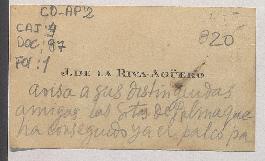 CD-AP2
CAJ: 9
DOC: 97
FOL: 1
820
J. DE LA RIVA-AGÜERO
avisa a sus distinguidas
amigas las Stas de Palma que
ha conseguido ya el palco pa